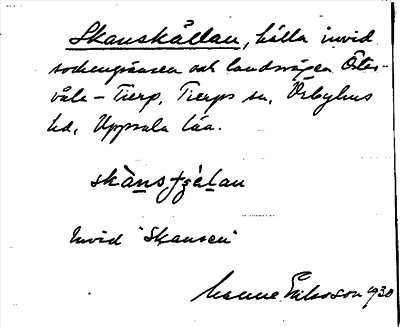 Skanskällan, källa invid
sockengränsen och landsvägen Öster-
våla - Tierp, Tierps sn, Örbyhus
hd, Uppsala län.
skànstjẹ́lan
Invid "Skansen"
Manne Eriksson 1930